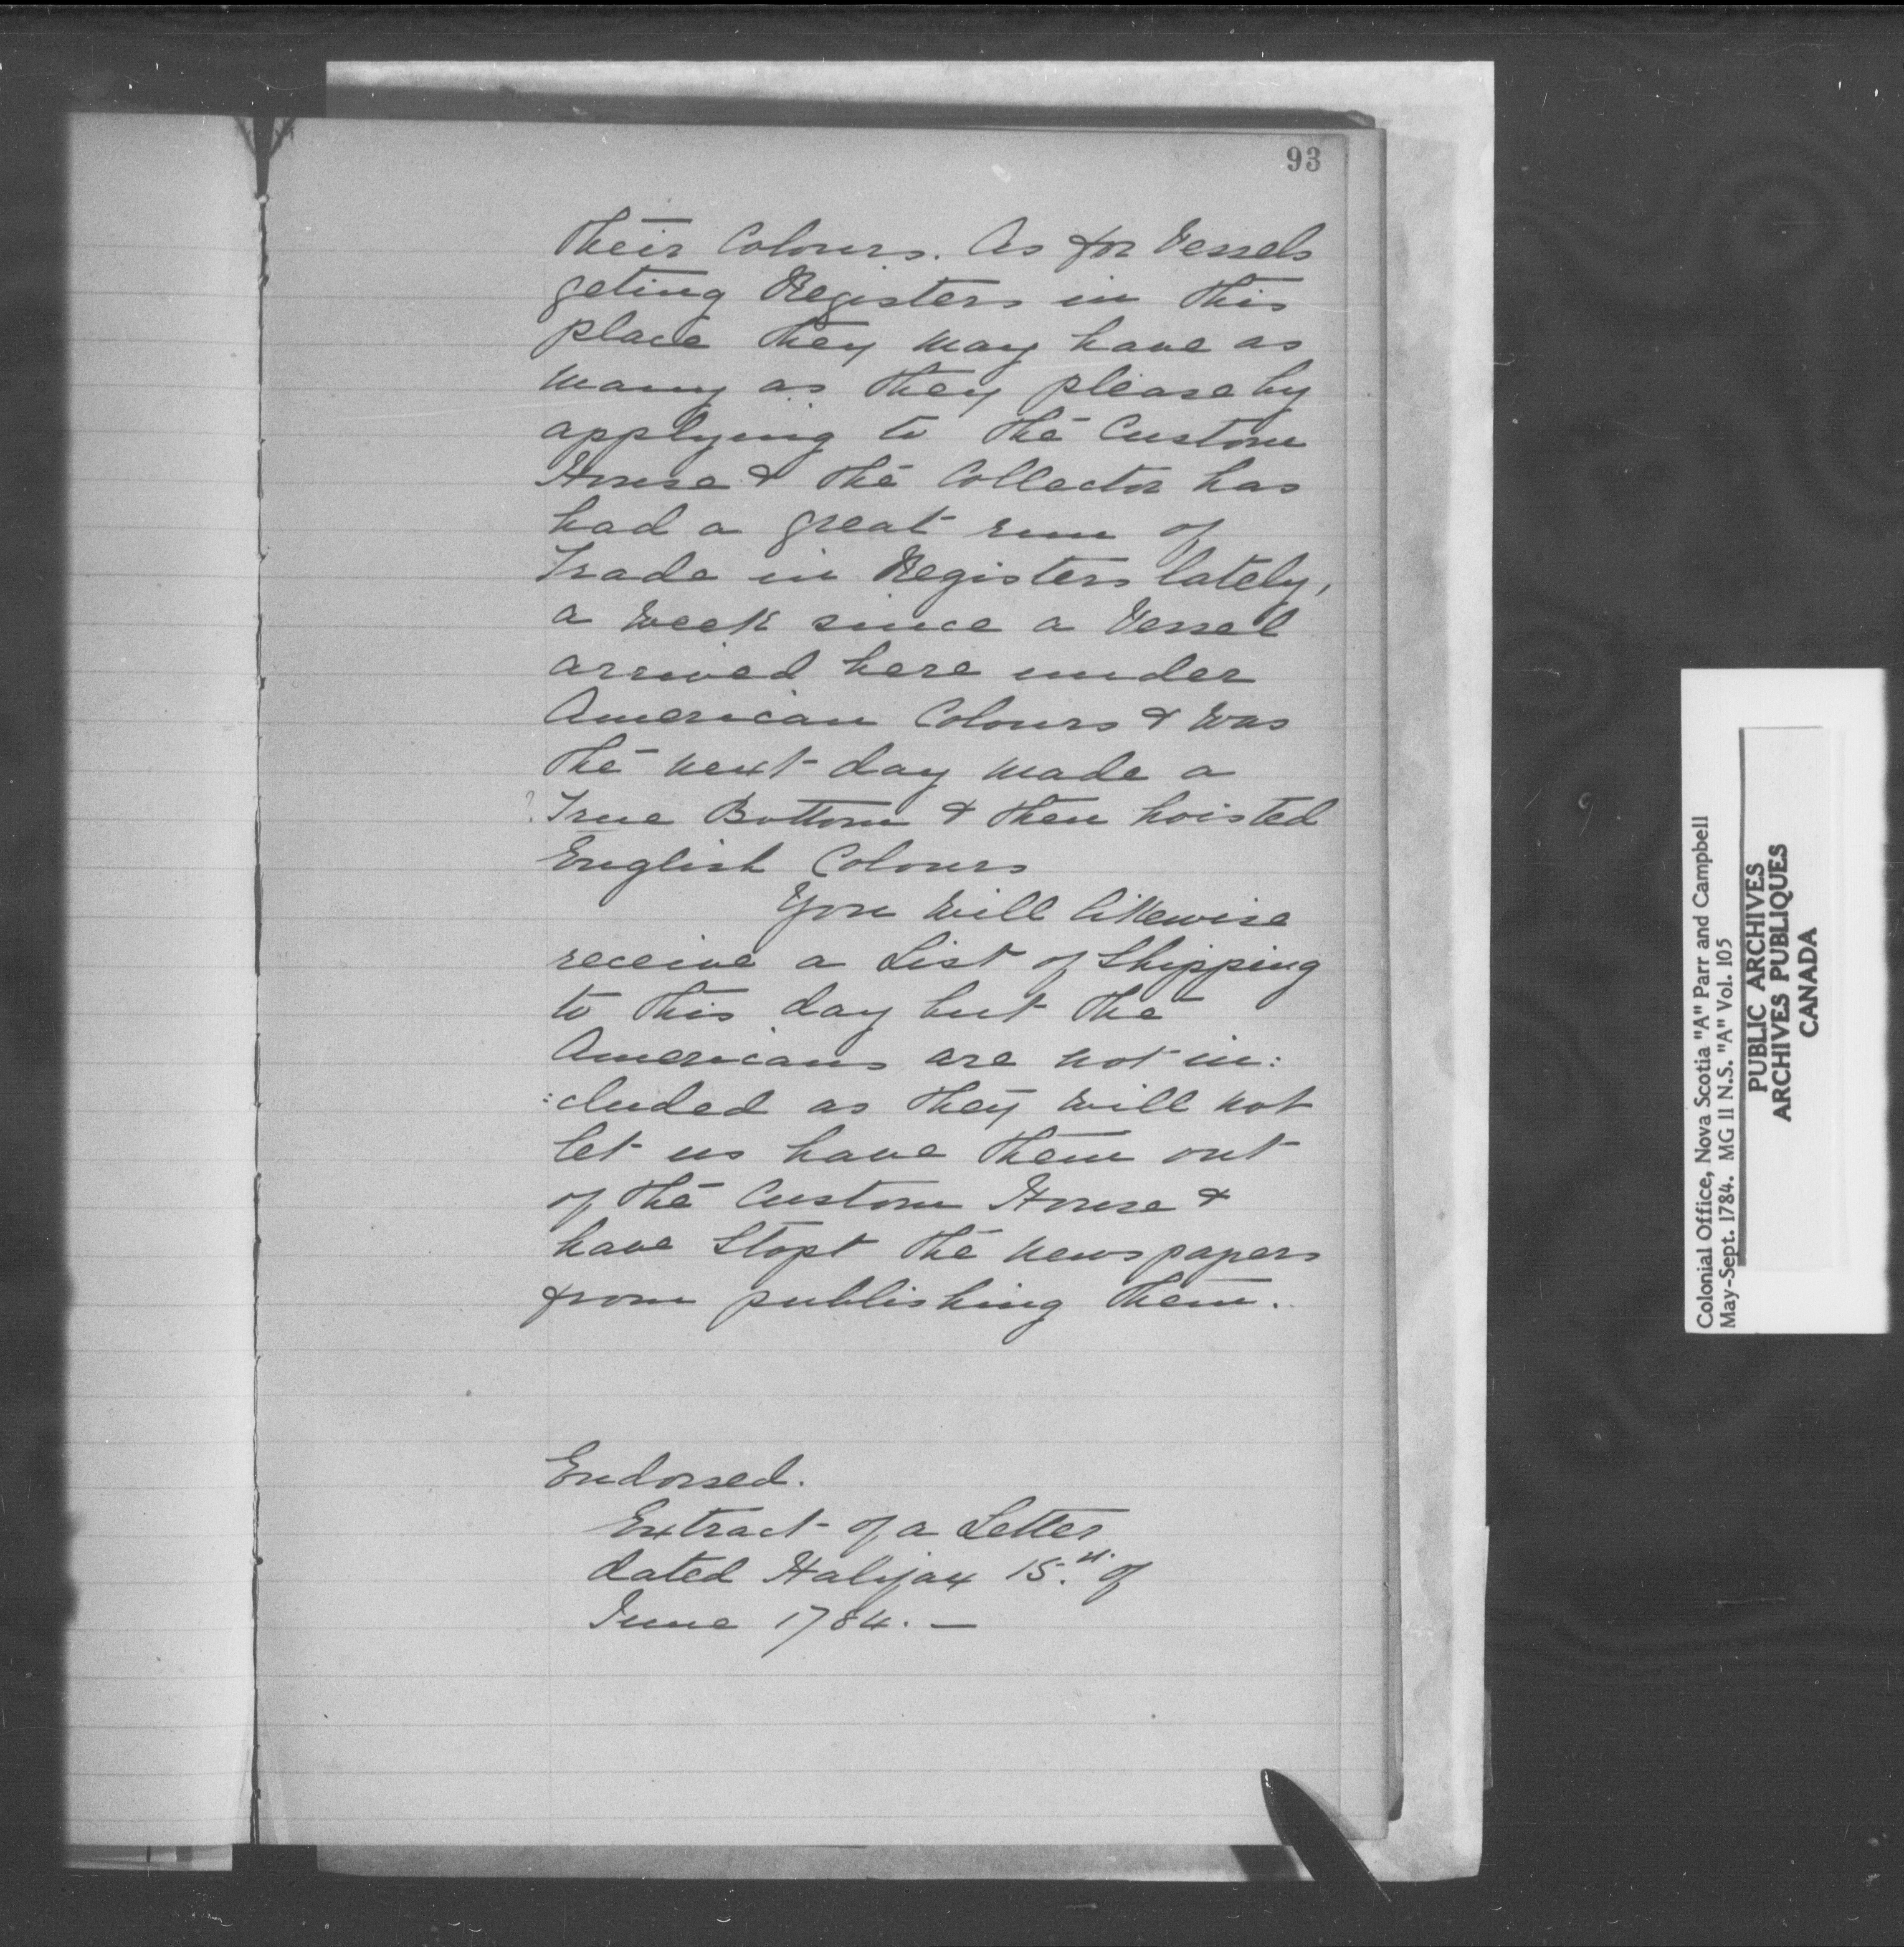 93
their Colours. As for Vessels
geting Registers in this
place they may have as
many as they please by
applying to the Custom
House & the Collector has
had a great run of
Trade in Registers lately,
a week since a Vessel
arrived here under
American Colours & was
the next day made a
? True Bottom & then hoisted
English Colours
You will likewise
receive a List of Shipping
to this day but the
Americans are not in:
:cluded as they will not
let us have them out
of the Custom House &
have Stopt the newspapers
from publishing them.
Endorsed.
Extract of a Letter
dated Halifax 15.th of
June 1784. —
Colonial Office, Nova Scotia "A" Parr and Campbell
May-Sept. 1784. MG 11 N.S. "A" Vol. 105
PUBLIC ARCHIVES
ARCHIVES PUBLIQUES
CANADA